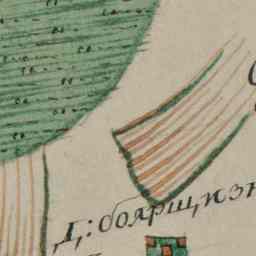 Д,: боярщизн